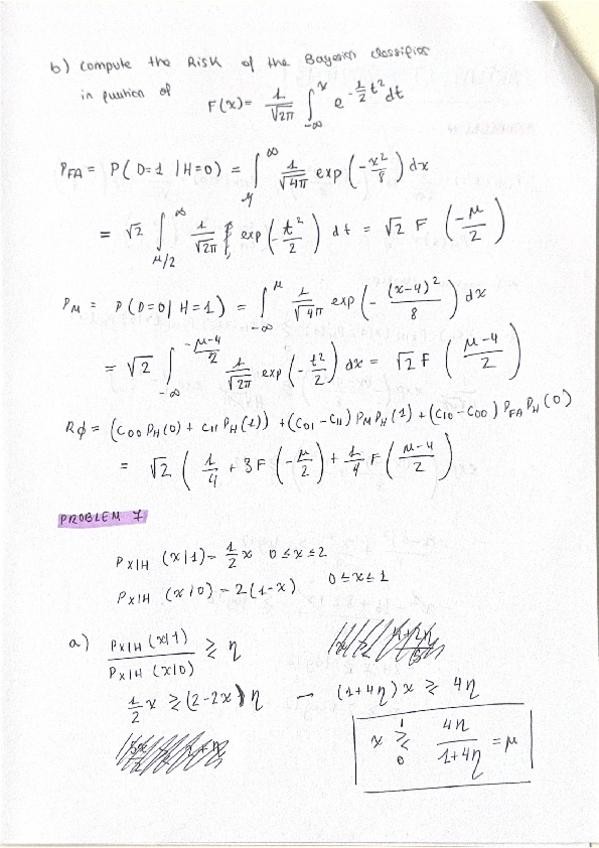 b) compute the Risk of the Bayesian classifier
in function of F(x) = 1/√2π ∫_{-∞}^{x} e^{-1/2 t²} dt
P_FA = P(D=1 | H=0) = ∫_{μ}^{∞} 1/√4π exp(-x²/8) dx
= √2 ∫_{μ/2}^{∞} 1/√2π exp(-t²/2) dt = √2 F(-μ/2)
P_M = P(D=0 | H=1) = ∫_{-∞}^{μ} 1/√4π exp(-(x-4)²/8) dx
= √2 ∫_{-∞}^{-μ-4/2} 1/√2π exp(-t²/2) dx = √2 F(μ-4/2)
Rϕ = (C00 P_H(0) + C11 P_H(1)) + (C01 - C11) P_M P_H(1) + (C10 - C00) P_FA P_H(0)
= √2 (1/4 + 3F(-μ/2) + 1/4 F(μ-4/2)
PROBLEM 7
P_X|H (x|1) = 1/2 x 0 ≤ x ≤ 2
P_X|H (x|0) = 2(1-x) 0 ≤ x ≤ 1
a) P_X|H (x|1) / P_X|H (x|0) ≥ η
1/2 x ≥ (2-2x) η → (1+4η) x ≥ 4η
x ≷ 4η / 1+4η = μ
1
0